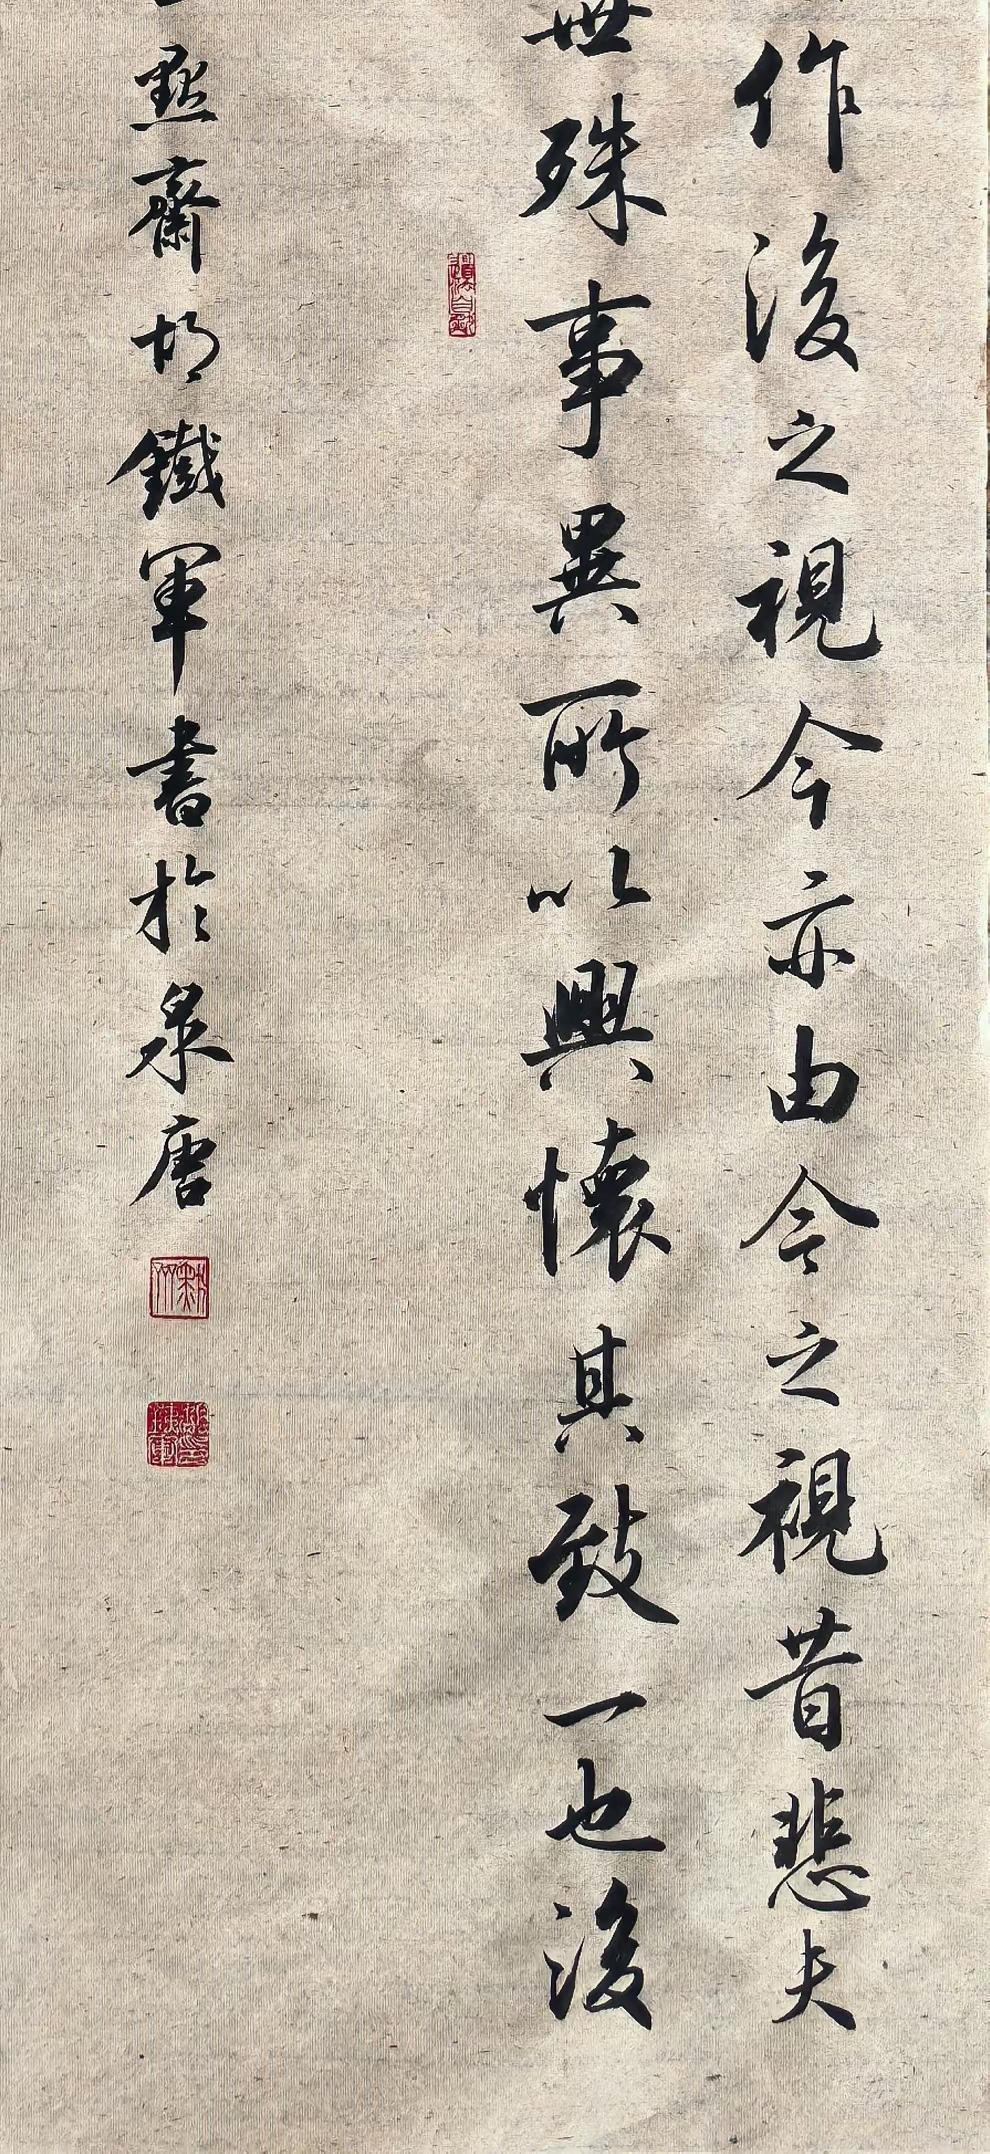 作後之視今亦由今之視昔悲夫
世殊事異所以興懷其致一也後
點齋胡鐵軍書於泉唐